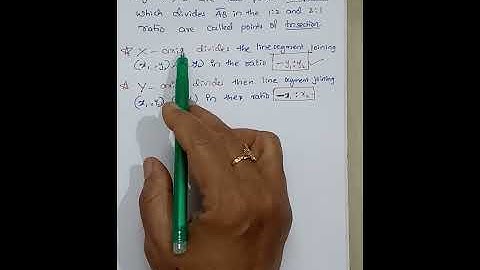 which divides AB in the 1:2 and 2:1
ratio are called points of trisection.
☆ X - axis divides the line segment joining
(x₁, y₁) y₂) in the ratio -y₁ : y₂ ✓
☆ Y - divides then line segment joining
(x₁, y₁) in ther ratio -x₁ : x₂